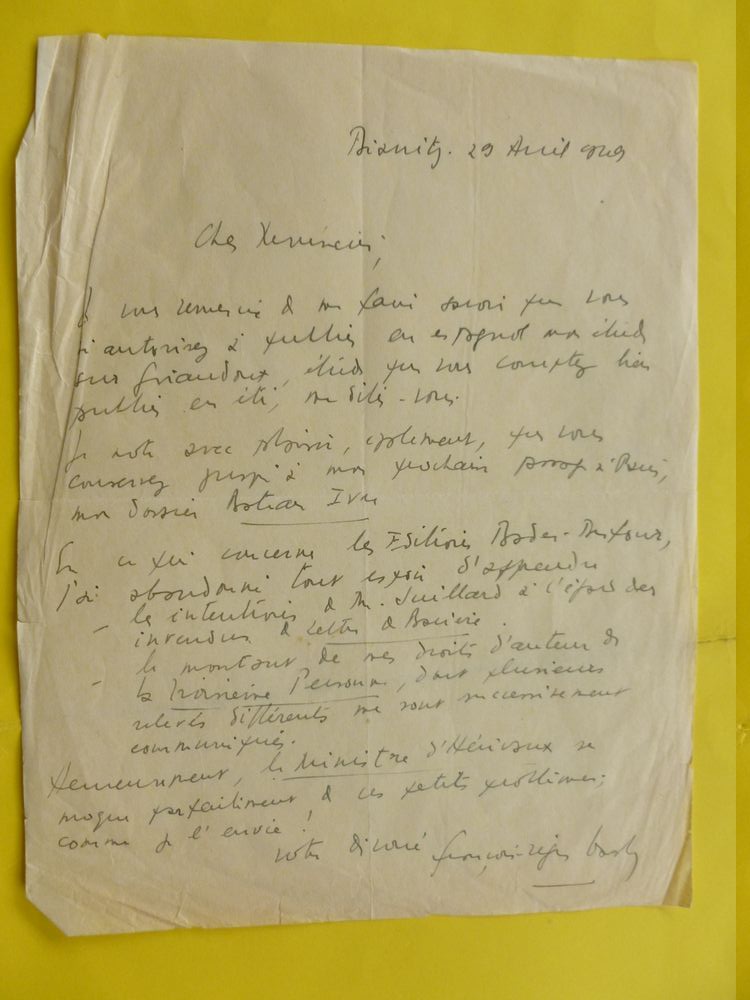 Biarritz. 29 Avril 1949
Cher
Je vous remercie de me faire savoir que vous
m'autorisez à publier en espagnol mon étude
sur Giraudoux, étude que vous comptez bien
publier en été, me dites-vous.
Je note avec plaisir, également, que vous
conservez jusqu'à mon prochain passage à Paris,
mon dossier Bateau Ivre
En ce qui concerne les Editions Bader-Dufour,
j'ai abandonné tout espoir d'apprendre
- les intentions de M. Julliard à l'égard des
invendus de Lettre de Bavière.
- le montant de mes droits d'auteur de
la Troisième Personne, dont plusieurs
relevés différents me sont successivement
communiqués.
Heureusement, le Ministre d'Hérivaux se
moque parfaitement de ces petits problèmes;
comme je l'envie!
votre dévoué françois-régis bastide